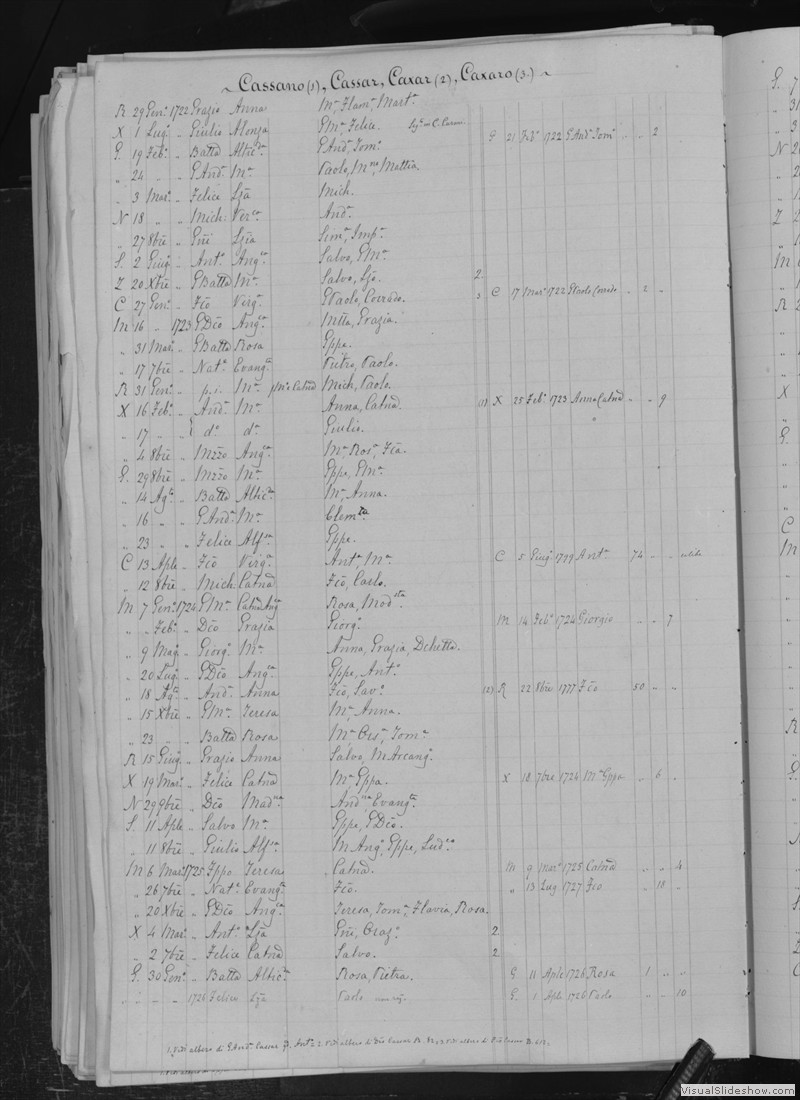 ~ Cassano (1), Cassar, Caxar (2), Caxaro (3) ~
R 29 Genº 1722 Grazio Anna Mª, Flamª, Martª.
X 1 Lugº „ Giulio Alonza GMª, Felice.
G. 19 Febº „ Batta G Andª, Tomª. G 21 Febº 1722 G Andª Tomª „ „ 2
„ 24 „ „ G Andª Mª Paolo, Mattia.
„ 3 Marº „ Felice Lzia Mich.
N 18 „ „ Mich: Verca Andª.
„ 27 8bre „ Gni Lzia Simª,
S. 2 Giugº „ Antº Angca Salvo, GMª.
Z 20 Xbre „ GBatta Mª Salvo, Lza. 2
C 27 Genº „ Fco Virgª GPaolo, Corrado. 3 C 17 Marº 1722 GPaolo Corrado „ 2 „
M 16 „ 1723 GDco Angca Mtta, Grazia.
„ 31 Marº „ GBatta Rosa Gppe.
„ 17 7bre „ Natº Evangta Pietro, Paolo.
R 31 Genº „ p.i. Mª Catna Mich, Paolo.
X 16 Febº „ Andª Mª Anna, Catna. (1) X 25 Febº 1723 Anna Catna „ „ 9
„ 17 „ „ dº dª Giulio.
„ 4 8bre „ Mzzo Angca Mª, Rosª, Fca.
G. 29 8bre „ Mzzo Mª Gppe, GMª.
„ 14 Agº „ Batta Mª, Anna.
„ 16 „ „ G Andª Mª Clemta
„ 23 „ „ Felice Alfca Gppe.
C 13 Aple „ Fco Virgª Antª, Mª. C 5 Giugº 1799 Antª 74 „ „
„ 12 8bre „ Mich: Catna Fco, Carlo.
M 7 Genº 1724 GMª Catna Angca Rosa, Modsta.
„ „ Febº „ Dco Grazia Giorgº. M 14 Febº 1724 Giorgio „ „ 7
„ 9 Magº „ Giorgº Mª Anna, Grazia,
„ 20 Lugº „ GDco Angca Gppe, Antº.
„ 18 Agº „ Andª Anna Fco, Savº. (2) R 22 8bre 1777 Fco 50 „ „
„ 15 Xbre „ GMª Teresa Mª, Anna.
„ 23 „ „ Batta Rosa Mª Orsª, Tomª.
R 15 Giugº „ Grazio Anna Salvo, M Arcangº.
X 19 Marº „ Felice Catna Mª, Gppa. X 18 7bre 1724 Mª Gppa „ 6 „
N 29 9bre „ Dco Madna Evangta.
S. 11 Aple „ Salvo Mª Gppe, GDco.
„ 11 8bre „ Giulio Alfca M Angº, Gppe, Ludco
M 6 Marº 1725 Fppo Teresa Catna. M 9 Marº 1725 Catna „ „ 4
„ 26 7bre „ Natº Evangta Fco. „ 13 Lug 1727 Fco „ 18 „
„ 20 Xbre „ GDco Angca Teresa, Tomª, Flavia, Rosa.
X 4 Marº „ Antº Lzia Gni, Orazº. 2
„ 2 7bre „ Felice Catna Salvo. 2
G. 30 Genº „ Batta Rosa, Pietra. G 11 Aple 1726 Rosa 1 „ „
„ „ „ 1726 Felice Lza Paolo G. 1 Aple 1726 Paolo „ „ 10
VisualSlideshow.com